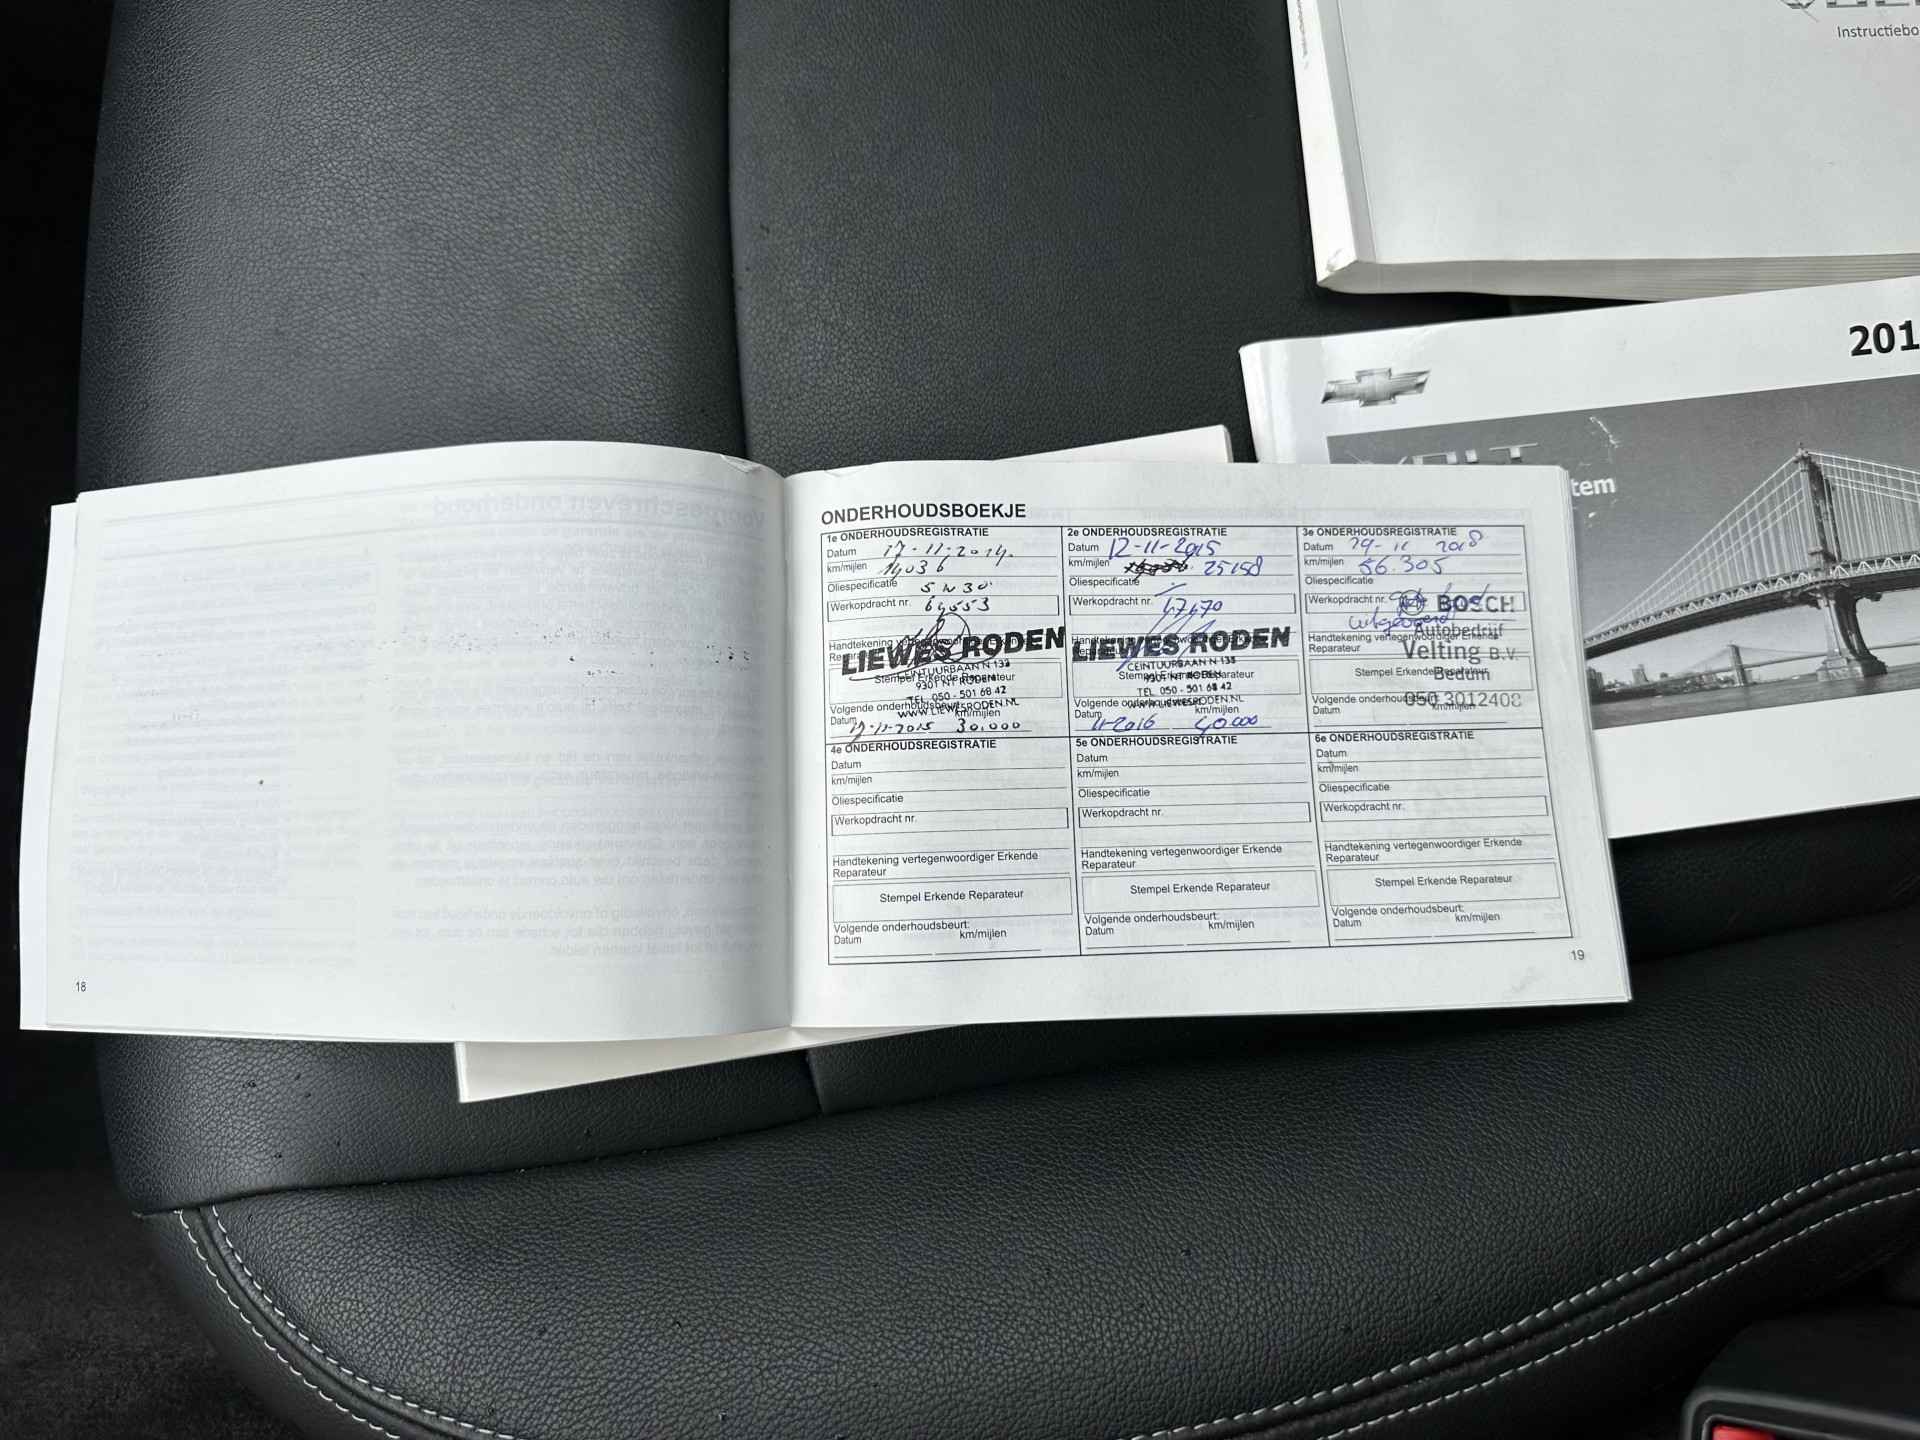 Instructiebo
201
tem
ONDERHOUDSBOEKJE
1e ONDERHOUDSREGISTRATIE
Datum 17-11-2014.
km/mijlen 14036
Oliespecificatie 5W30
Werkopdracht nr. 64553
Handtekening vertegenwoordiger Erkende
Reparateur
LIEWES RODEN
CEINTUURBAAN N 133
Stempel Erkende Reparateur
9301 NT RODEN
TEL 050 - 501 68 42
WWW.LIEWESRODEN.NL
Volgende onderhoudsbeurt:
Datum km/mijlen
17-11-2015 30.000
2e ONDERHOUDSREGISTRATIE
Datum 12-11-2015
km/mijlen 25158
Oliespecificatie
Werkopdracht nr. 47470
Handtekening vertegenwoordiger Erkende
Reparateur
LIEWES RODEN
CEINTUURBAAN N 133
Stempel Erkende Reparateur
9301 NT RODEN
TEL 050 - 501 68 42
WWW.LIEWESRODEN.NL
Volgende onderhoudsbeurt:
Datum km/mijlen
11-2016 40.000
3e ONDERHOUDSREGISTRATIE
Datum 29-11 2018
km/mijlen 56.305
Oliespecificatie
Werkopdracht nr.
BOSCH
Autobedrijf
Handtekening vertegenwoordiger Erkende
Reparateur
Velting B.V.
Stempel Erkende Reparateur
Bedum
Volgende onderhoudsbeurt:
050 3012408
Datum km/mijlen
4e ONDERHOUDSREGISTRATIE
Datum
km/mijlen
Oliespecificatie
Werkopdracht nr.
Handtekening vertegenwoordiger Erkende
Reparateur
Stempel Erkende Reparateur
Volgende onderhoudsbeurt:
Datum km/mijlen
5e ONDERHOUDSREGISTRATIE
Datum
km/mijlen
Oliespecificatie
Werkopdracht nr.
Handtekening vertegenwoordiger Erkende
Reparateur
Stempel Erkende Reparateur
Volgende onderhoudsbeurt:
Datum km/mijlen
6e ONDERHOUDSREGISTRATIE
Datum
km/mijlen
Oliespecificatie
Werkopdracht nr.
Handtekening vertegenwoordiger Erkende
Reparateur
Stempel Erkende Reparateur
Volgende onderhoudsbeurt:
Datum km/mijlen
18
19